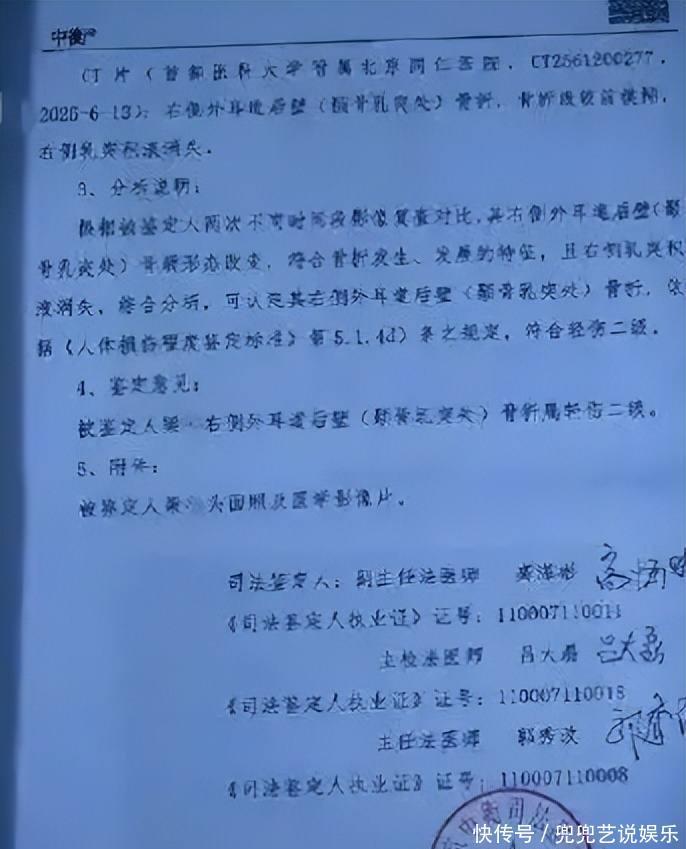 中衡
CT片(首都医科大学附属北京同仁医院,CT2561200277,
2025-6-13):右侧外耳道后壁(颞骨乳突处)骨折,骨折线较前模糊,
右侧乳突积液消失。
3、分析说明:
根据被鉴定人两次不同时间段影像复查对比,其右侧外耳道后壁(颞
骨乳突处)骨质形态改变,符合骨折发生、发展的特征,且右侧乳突积
液消失,综合分析,可认定其右侧外耳道后壁(颞骨乳突处)骨折,依
据《人体损伤程度鉴定标准》第5.1.4d)条之规定,符合轻伤二级。
4、鉴定意见:
被鉴定人 右侧外耳道后壁(颞骨乳突处)骨折属轻伤二级。
5、附件:
被鉴定人 头面照及医学影像片。
司法鉴定人:副主任法医师
《司法鉴定人执业证》证号:110007110011
主检法医师 吕大磊
《司法鉴定人执业证》证号:110007110018
主任法医师 郭秀波
《司法鉴定人执业证》证号:110007110008
中衡司法
快传号/兜兜艺说娱乐